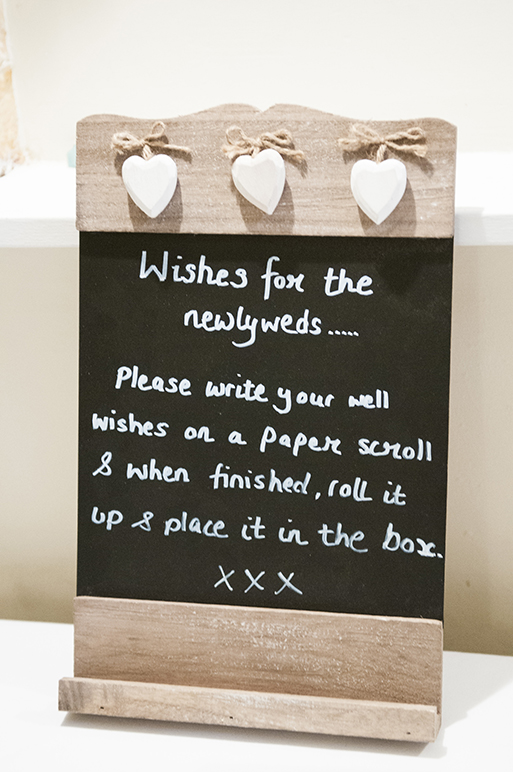 Wishes for the
newlyweds.....
Please write your well
wishes on a paper scroll
& when finished, roll it
up & place it in the box.
xxx